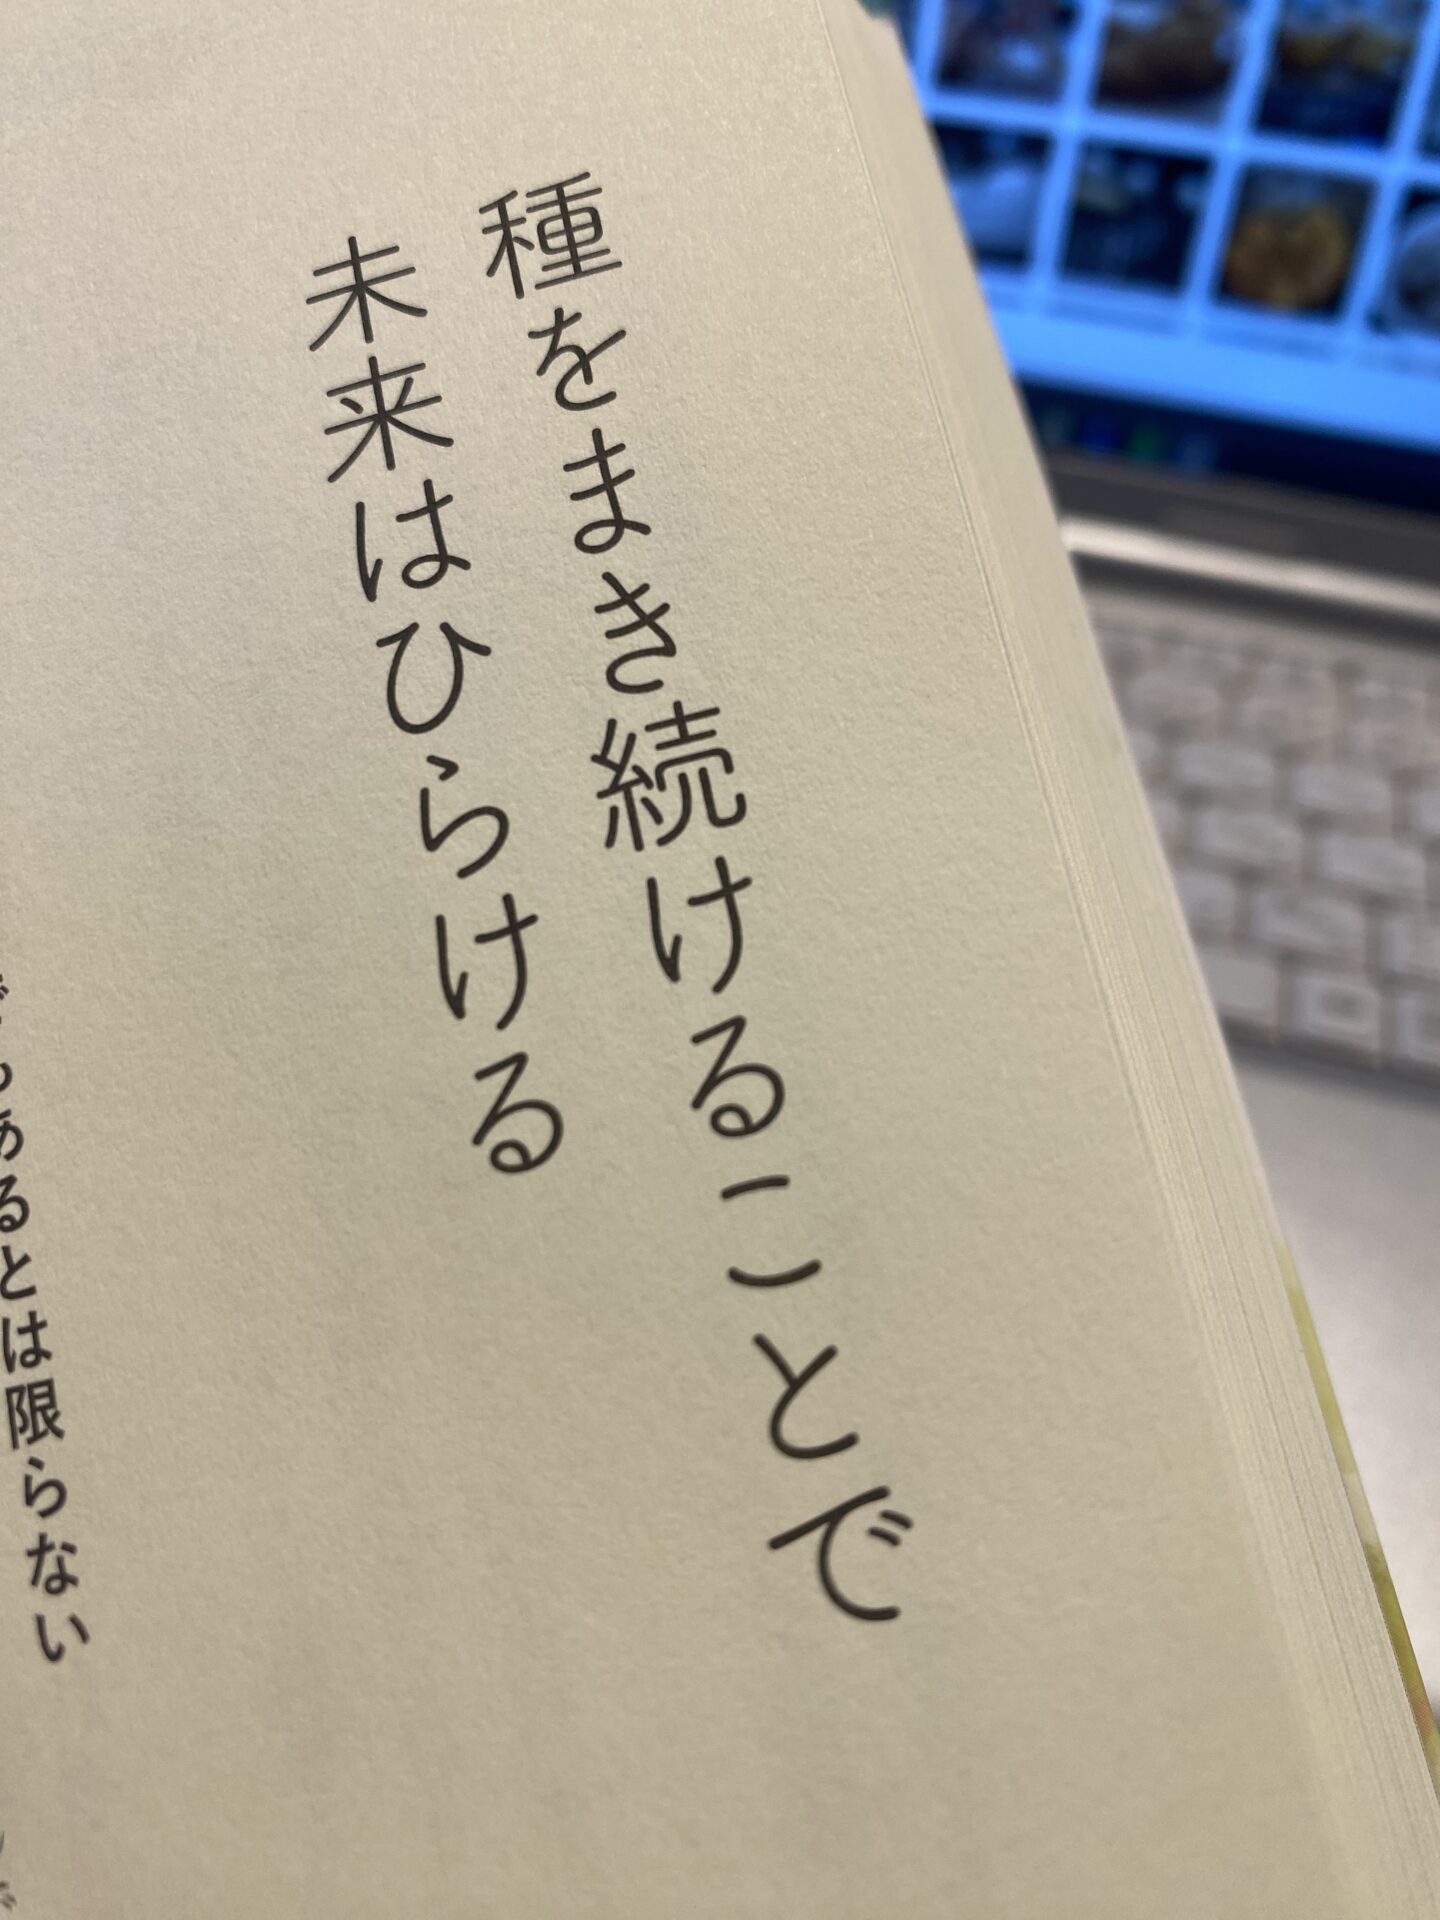 種をまき続けることで
未来はひらける
もあるとは限らない